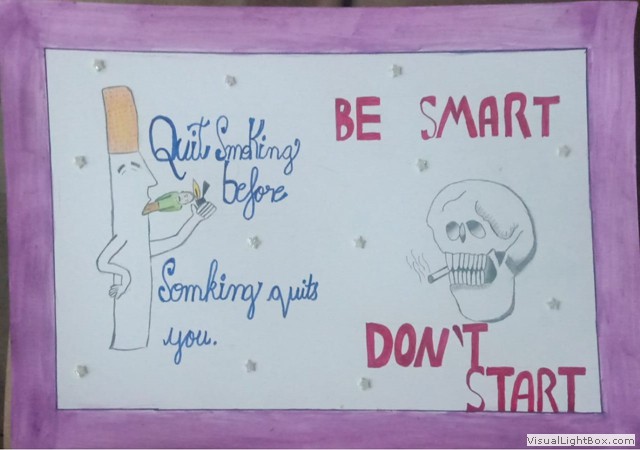 Quit Smoking
before
Somking quits
you.
BE SMART
DON'T
START
VisualLightBox.com